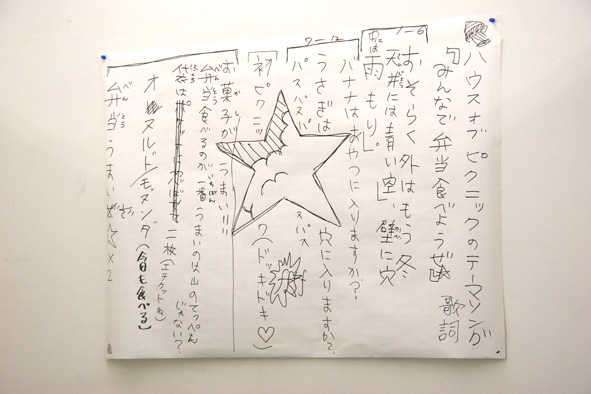 ハウスオブピクニックのテーマソング
「みんなで弁当食べようぜ」
歌詞
1-6
おそらく外はもう冬
天井には青い空、壁に穴
雨もり」
バナナはおやつに入りますか?
7-12
うさぎは 穴に入りますか?
パスパスパ スパス
初ピクニック(ドッキドキ♡)
樹
お菓子がうまい!!!
弁当食べるのが一番うまいのは山のてっぺんじゃない?
袋は 二枚(エチケットね)
オ ヌルド/モメンタ(今日も食べる)
弁当うまいぜ☆×2